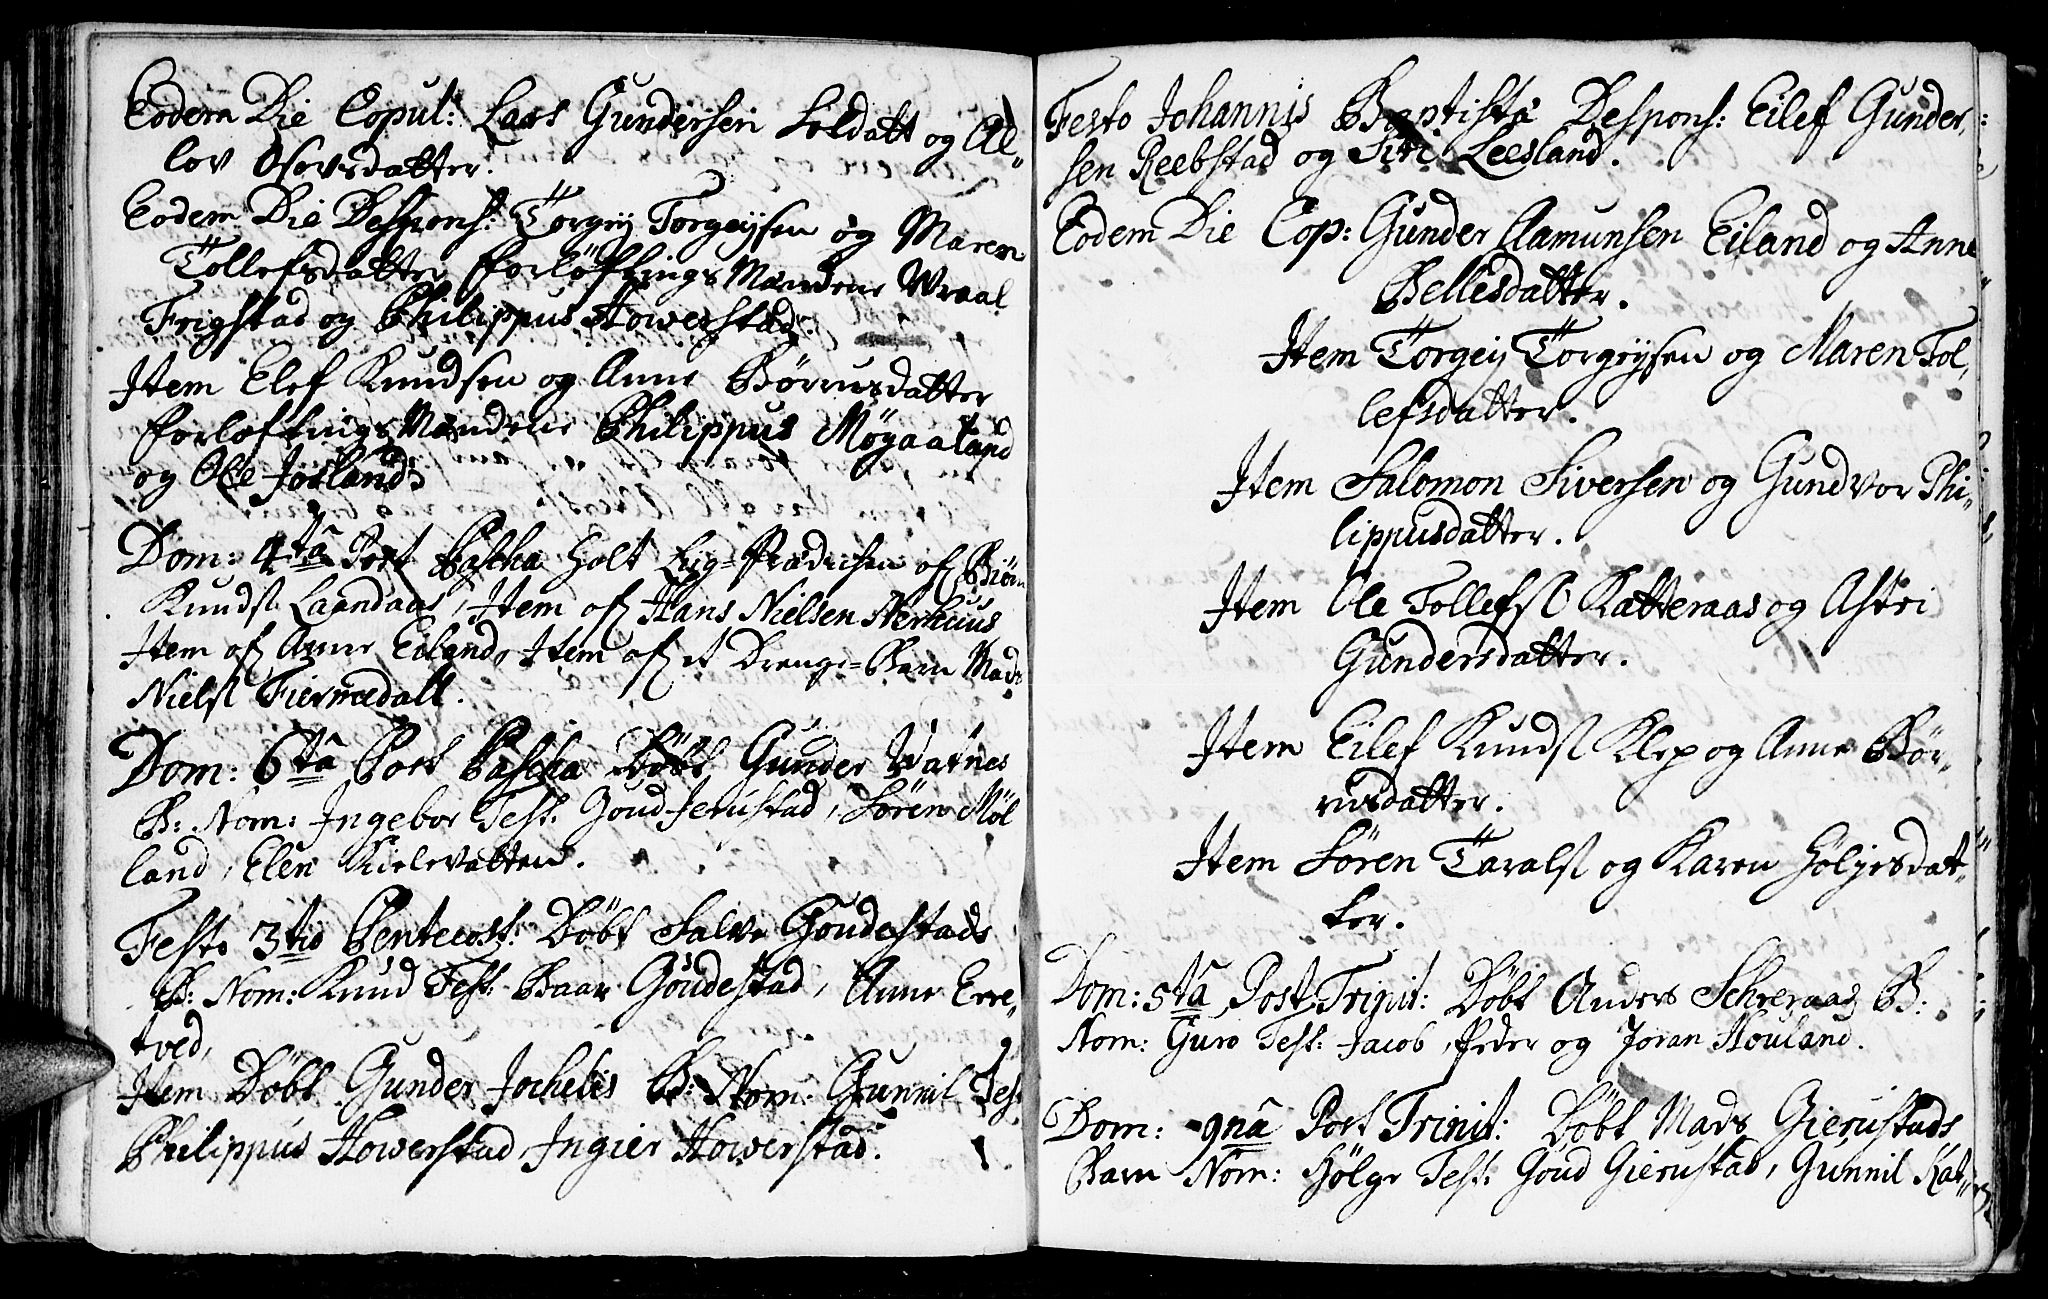 Eodem Die Copul: Lars Gundersen Soldatt og Al„
lov Osovsdatter.
Eodem Die Despons: Torgeij Torgeijsen og Maren
Tollefsdatter Forløftnings Mændene Wraal
Frigstad og Philippus Howerstad.
Item Elef Knudsen og Anne Børrusdatter
Forløftnings Mændene Philippus Møgaaland
og Ole Josland.
Dom: 4ta Post Pascha Holt Lig-Prædichen of Biørn
Knuds. Laandaas, Item of Hans Nielsen Nerhuus
Item of Anne Eiland, Item of et Drenge-Barn Mads
Niels. Fiermedall.
Dom: 6ta Post Pascha Døbt Gunder Watnes
B: Nom: Ingebor Test: Goud Jerustad, Sören Möl
land, Elen Kielevatten.
Festo 3tio Pentecost: Døbt Salve Goudestads
B: Nom: Knud Test: Baar Goudestad, Anne Erre„
tved,
Item Døbt Gunder Jochelis B: Nom: Gunnil Test
Philippus Howerstad Ingier Howerstad.
Festo Johannis Baptista Despons: Eilef Gunder„
sen Reebstad og Siri Leesland.
Eodem Die Cop: Gunder Aamunsen Eiland og Anne
Bellesdatter.
Item Torgeij Torgeijsen og Maren Tol„
lefsdatter.
Item Salomon Siversen og Gundvor Phi„
lippusdatter.
Item Ole Tollefs. Katteraas og Astri
Gundersdatter.
Item Eilef Knuds. Klep og Anne Bör„
rusdatter.
Item Sören Tarals. og Karen Höljesdat„
ter.
Dom: 5ta Post Trinit: Døbt Anders Schreraas B:
Nom: Guro Test: Jacob, Peder og Joran Houland.
Dom: 9na Post Trinit: Døbt Mads Gierustads
Barn Nom: Hölge Test: Goud Gierustad, Gunnil Kat„